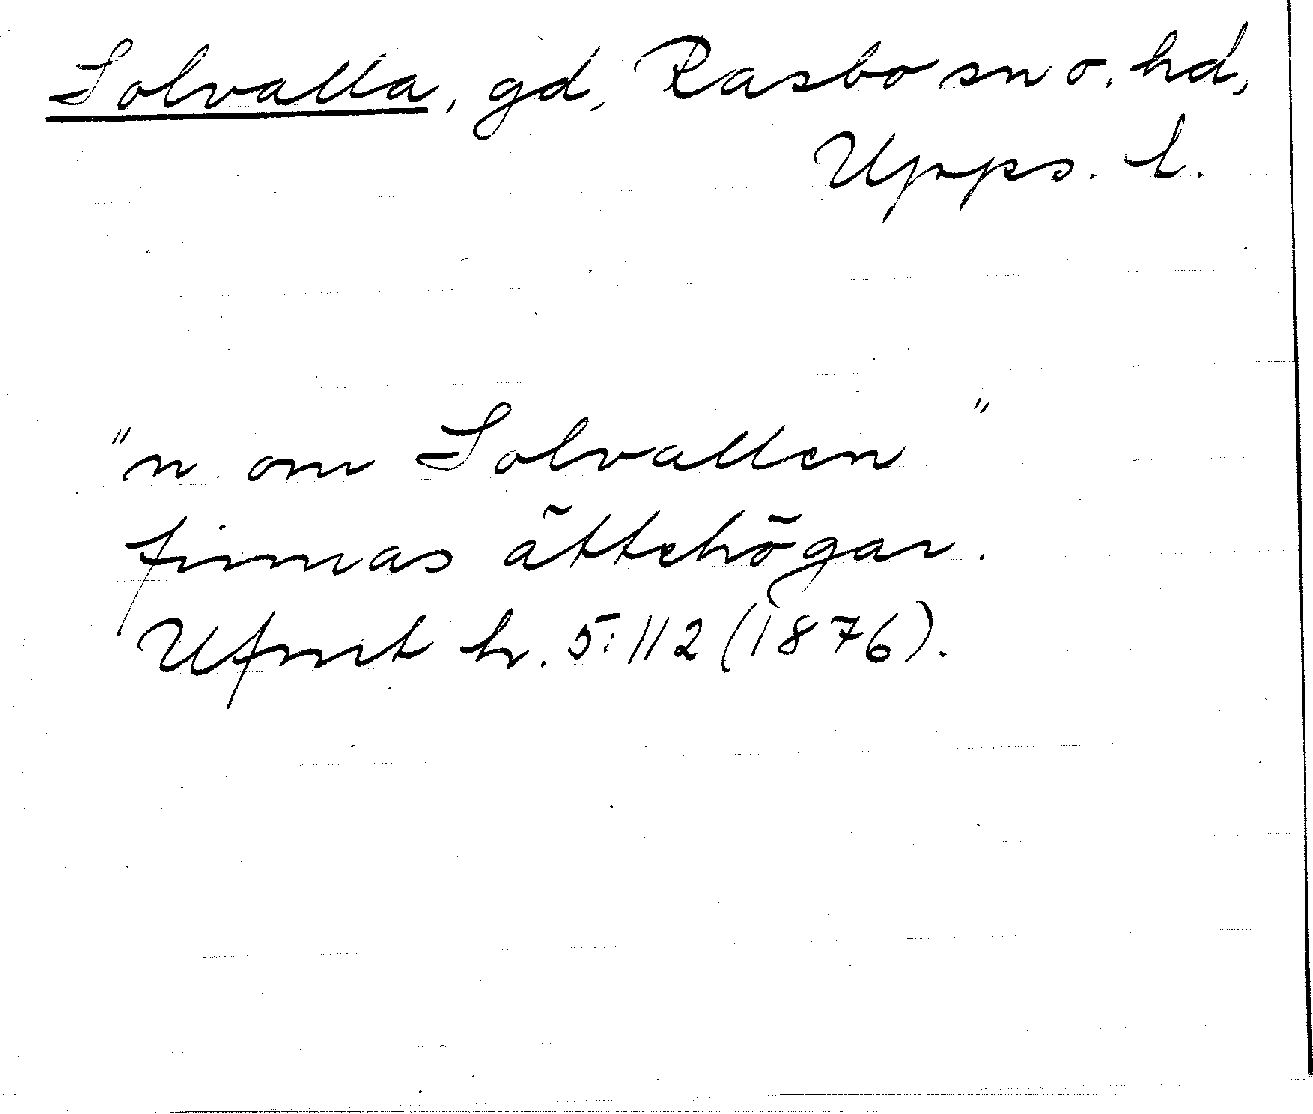 Solvalla, gd, Rasbo sn o. hd,
Upps. l.
"n om Solvallen"
finnas ättehögar.
Ufmt h. 5:112 (1876).